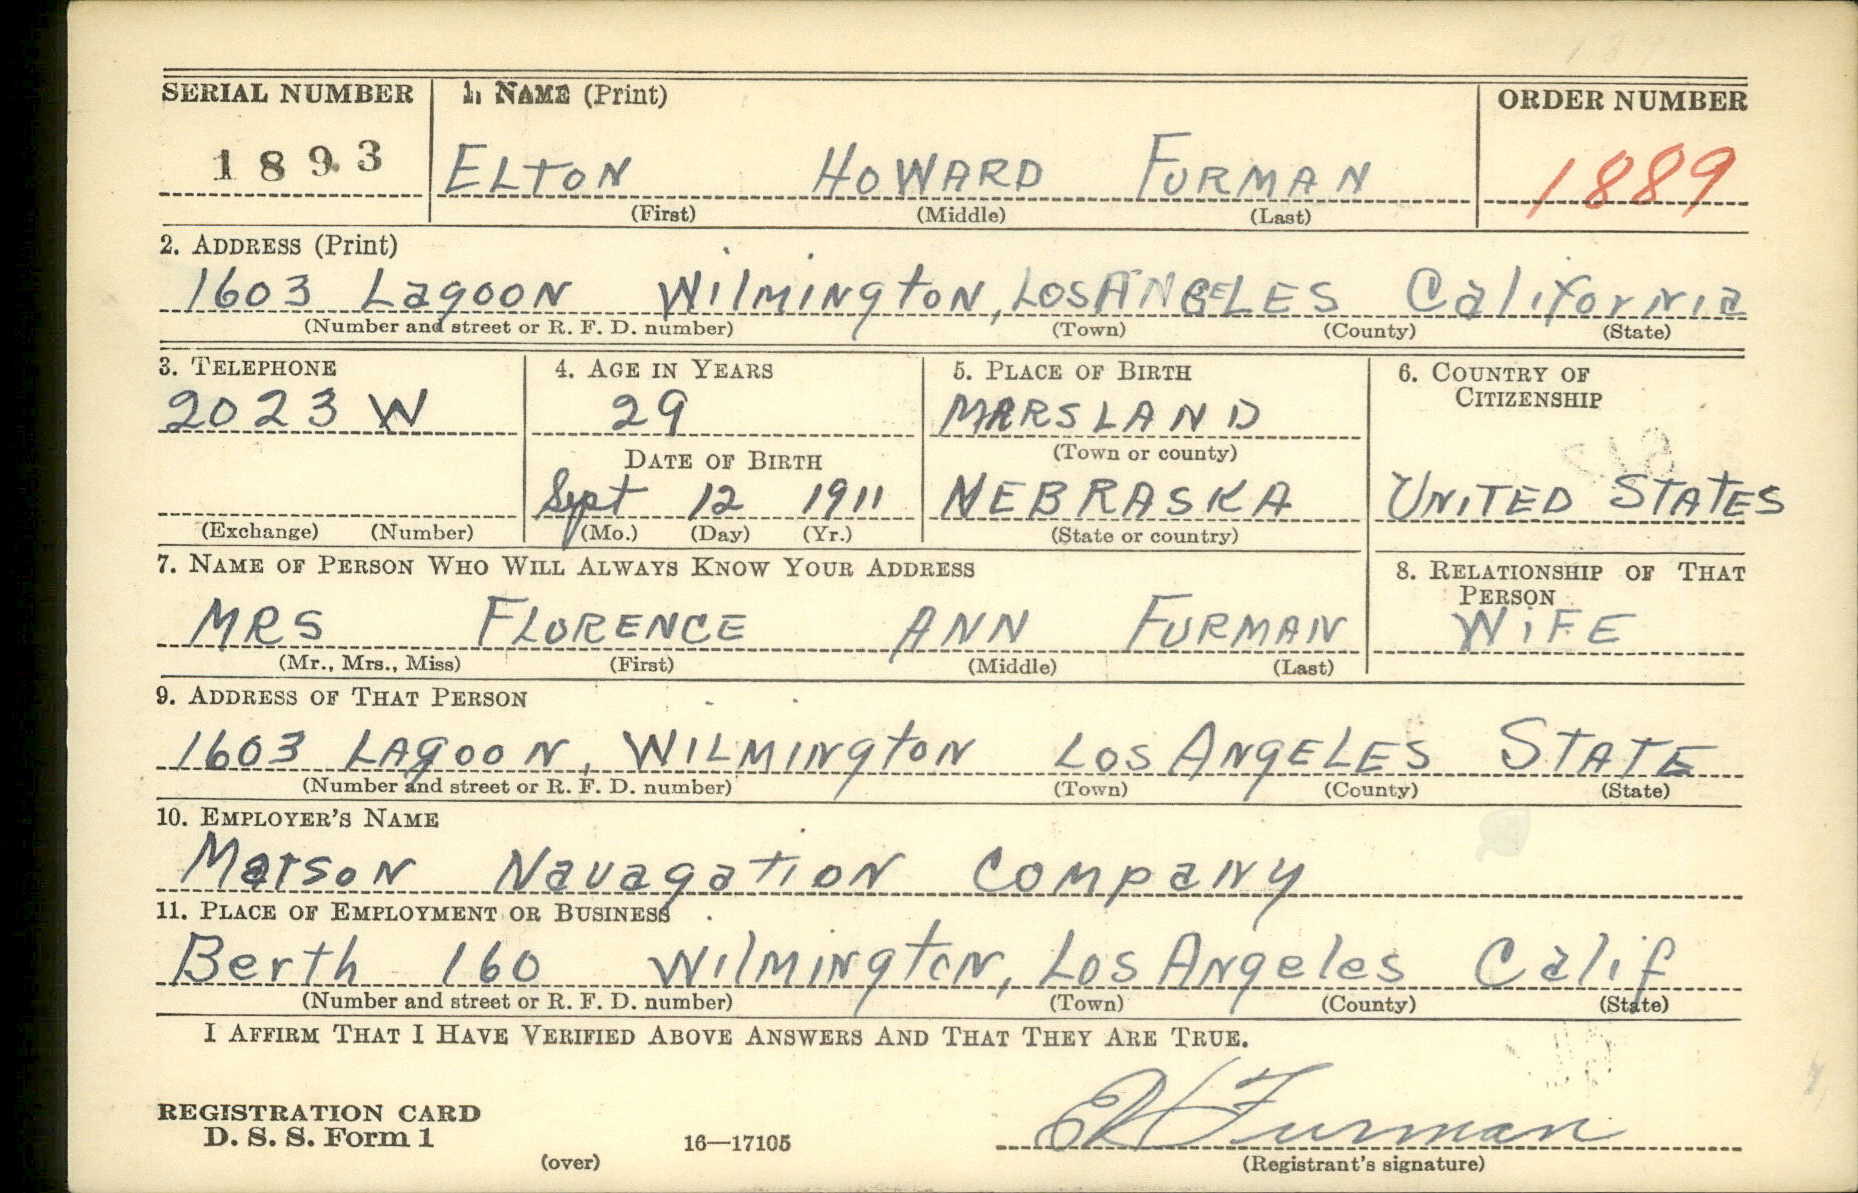 SERIAL NUMBER 1. NAME (Print) ORDER NUMBER
1893 ELTON HOWARD FURMAN 1889
(First) (Middle) (Last)
2. ADDRESS (Print)
1603 Lagoon Wilmington, LOS ANGELES California
(Number and street or R. F. D. number) (Town) (County) (State)
3. TELEPHONE 4. AGE IN YEARS 5. PLACE OF BIRTH 6. COUNTRY OF CITIZENSHIP
2023 W 29 MARSLAND
DATE OF BIRTH (Town or county)
Sept 12 1911 NEBRASKA UNITED STATES
(Exchange) (Number) (Mo.) (Day) (Yr.) (State or country)
7. NAME OF PERSON WHO WILL ALWAYS KNOW YOUR ADDRESS 8. RELATIONSHIP OF THAT PERSON
MRS FLORENCE ANN FURMAN WIFE
(Mr., Mrs., Miss) (First) (Middle) (Last)
9. ADDRESS OF THAT PERSON
1603 LAgOON, WILMINgtON LOS ANgELES STATE
(Number and street or R. F. D. number) (Town) (County) (State)
10. EMPLOYER'S NAME
Matson Navagation Company
11. PLACE OF EMPLOYMENT OR BUSINESS
Berth 160 Wilmington, Los Angeles Calif
(Number and street or R. F. D. number) (Town) (County) (State)
I AFFIRM THAT I HAVE VERIFIED ABOVE ANSWERS AND THAT THEY ARE TRUE.
REGISTRATION CARD
D. S. S. Form 1 16—17105 E H Furman
(over) (Registrant's signature)